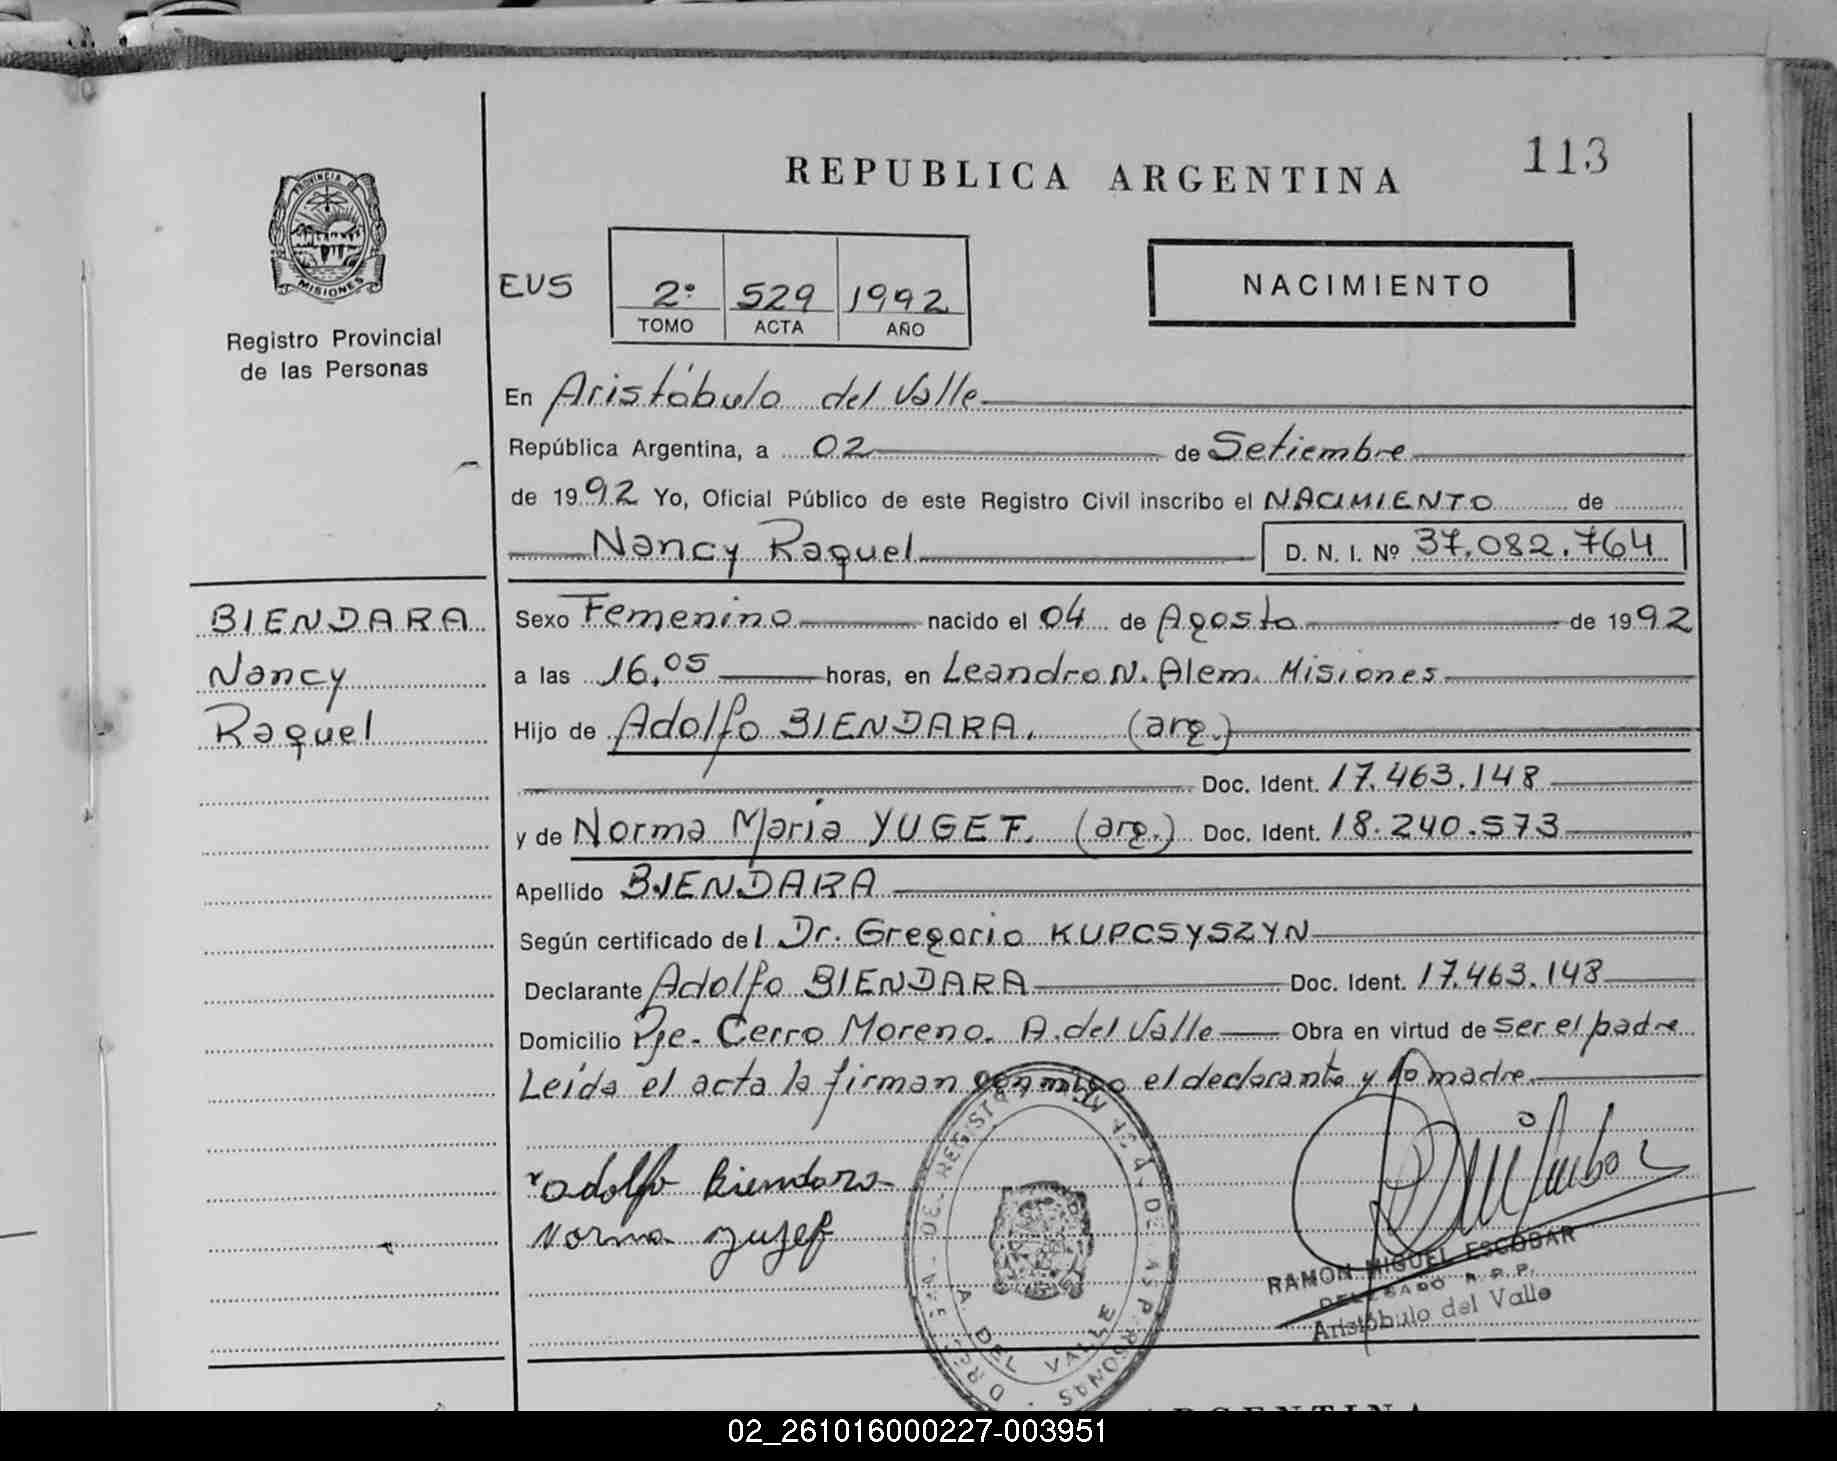 113
REPUBLICA ARGENTINA
PROVINCIA DE
MISIONES
Registro Provincial
de las Personas
NACIMIENTO
EUS
2º 529 1992
TOMO ACTA AÑO
En Aristóbulo del Valle
República Argentina, a 02 de Setiembre
de 1992 Yo, Oficial Público de este Registro Civil inscribo el NACIMIENTO de
Nancy Raquel D. N. I. Nº 37.082.764
BIENDARA
Nancy
Raquel
Sexo Femenino nacido el 04 de Agosto de 1992
a las 16,05 horas, en Leandro N. Alem. Misiones
Hijo de Adolfo BIENDARA. (arg.)
Doc. Ident. 17.463.148
y de Norma Maria YUGEF. (arg.) Doc. Ident. 18.240.573
Apellido BIENDARA
Según certificado del Dr. Gregorio KUPCSYSZYN
Declarante Adolfo BIENDARA Doc. Ident. 17.463.148
Domicilio Pje. Cerro Moreno. A. del Valle Obra en virtud de ser el padre
Leída el acta la firman conmigo el declarante y la madre
Adolfo Biendara
Norma Yugef
A. DEL VALLE
RAMON MIGUEL ESCOBAR
DELEGADO R.P.P.
Aristóbulo del Valle
ARGENTINA
02_261016000227-003951